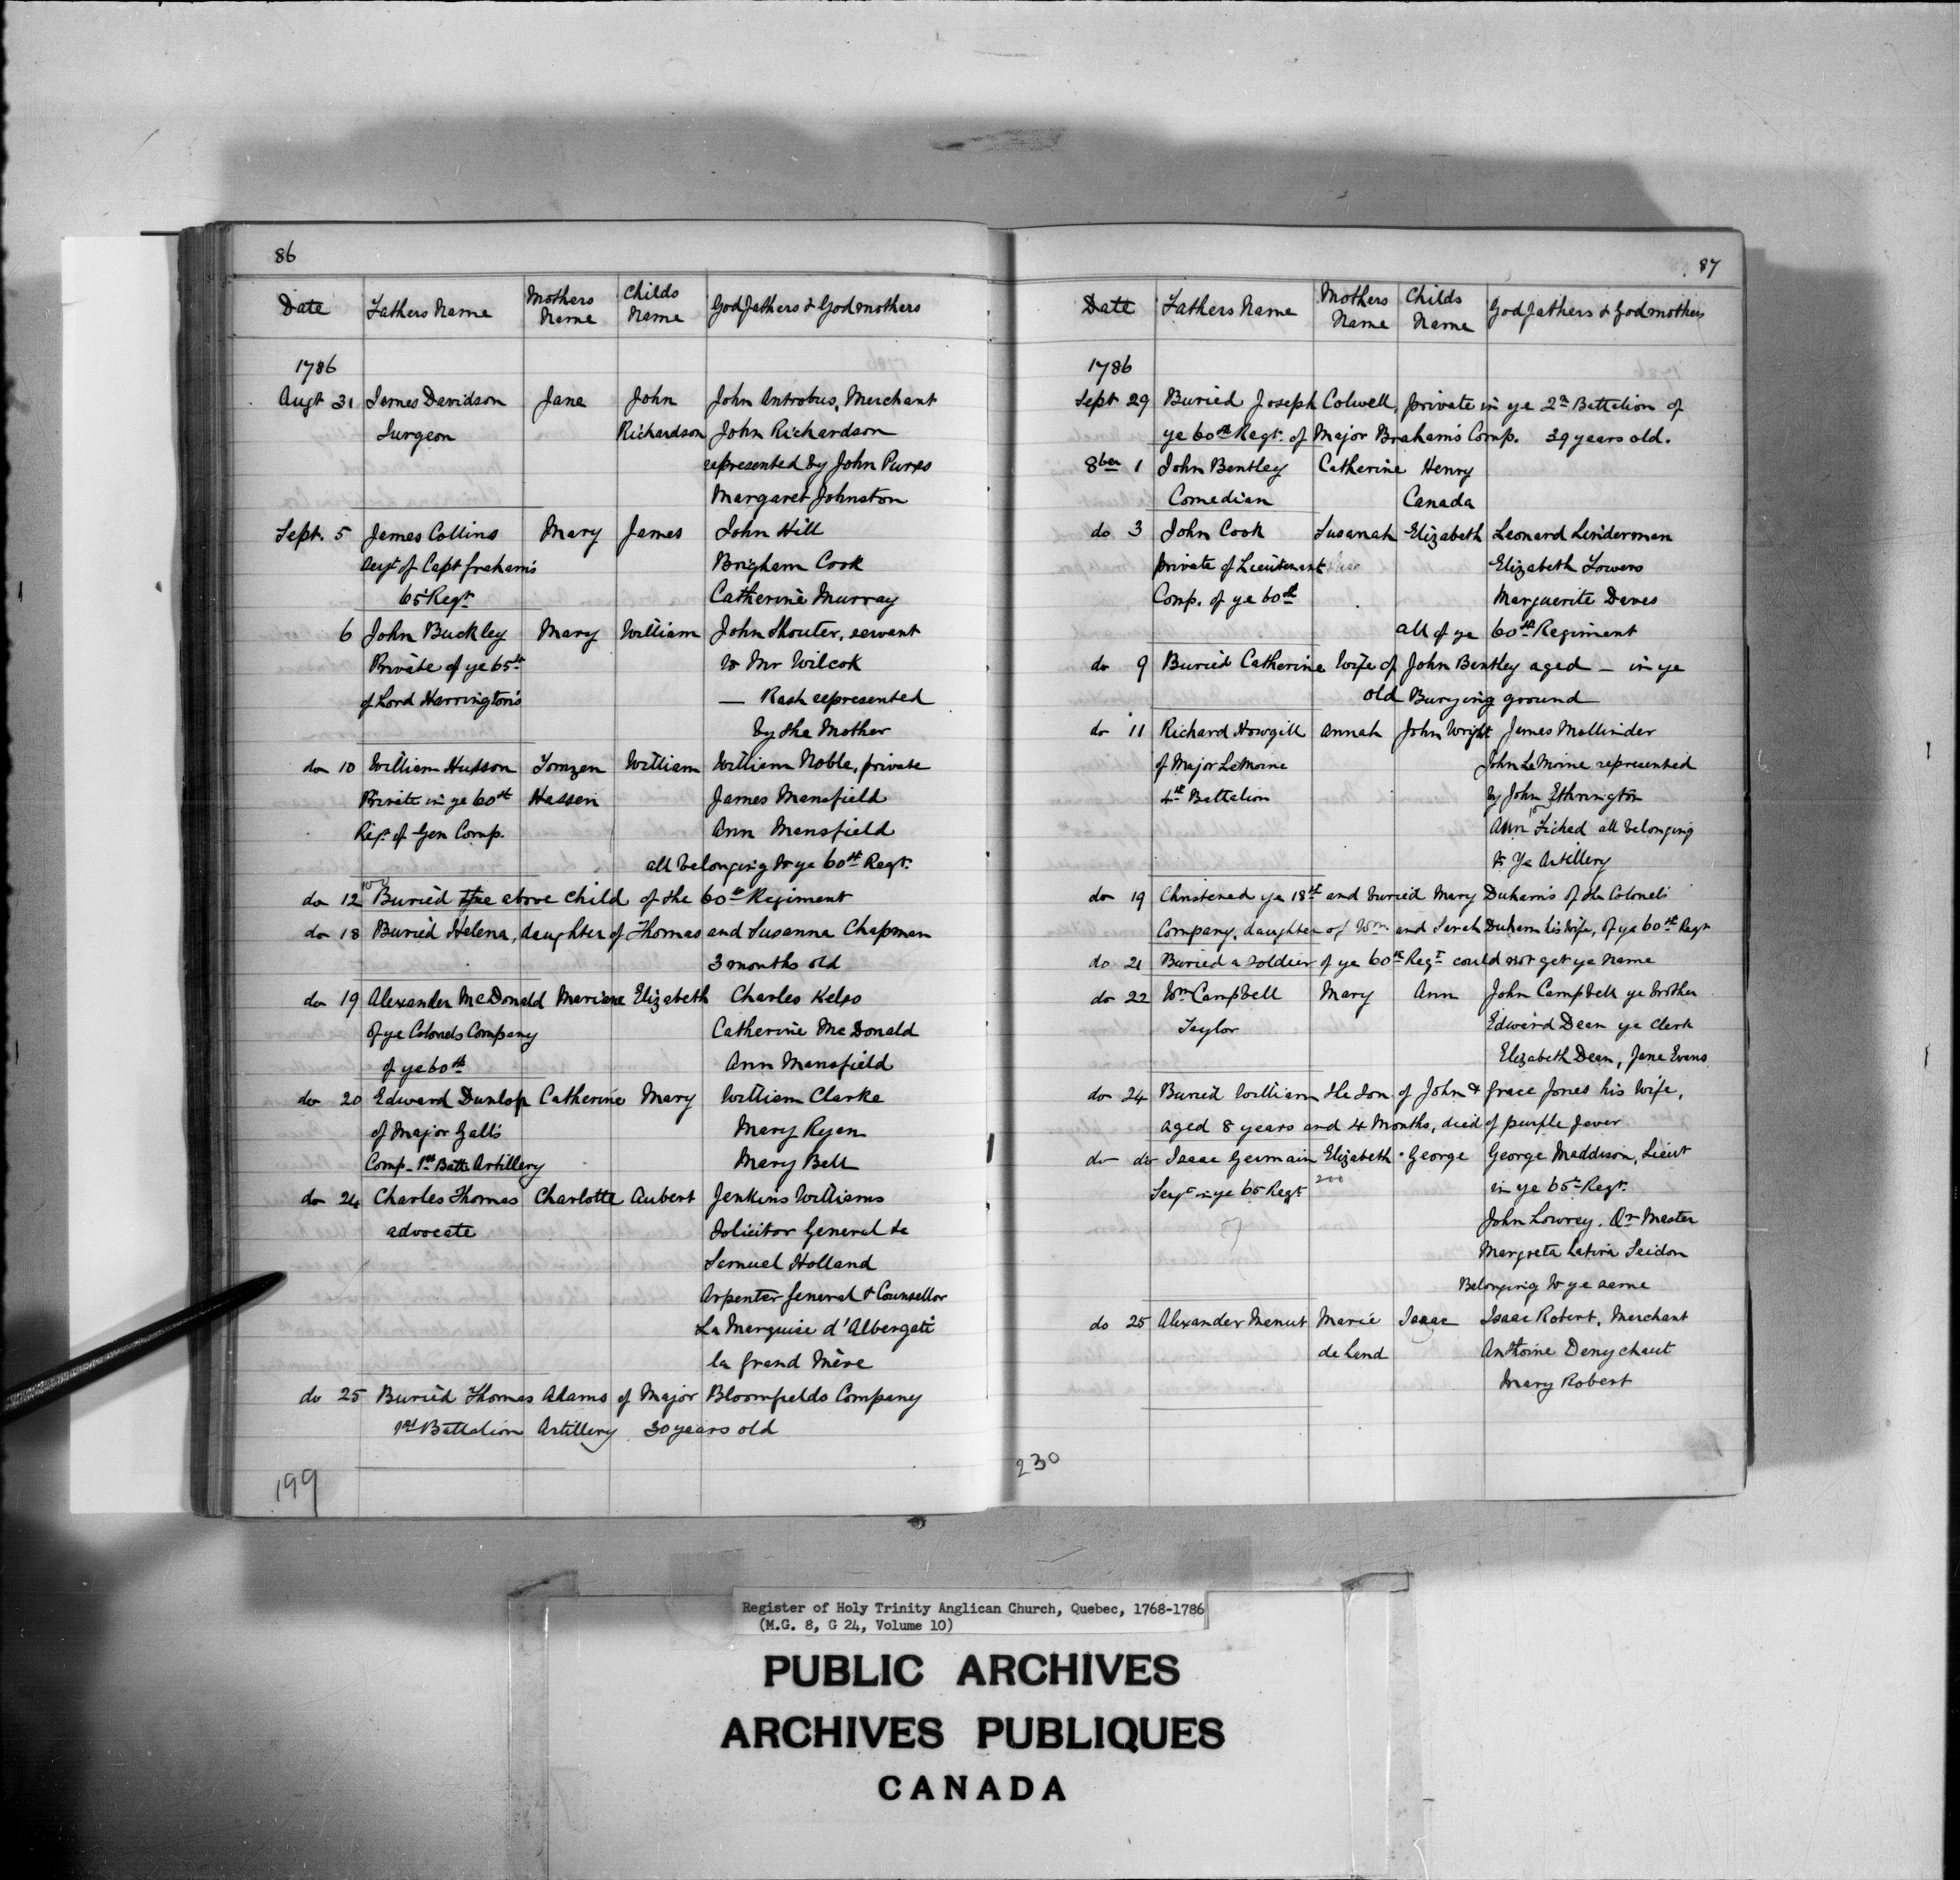 86
Date Fathers Name Mothers Name Childs Name Godfathers & Godmothers
1786
Augt 31 James Davidson Jane John John Antrobus, Merchant
Surgeon Richardson John Richardson
represented by John Purss
Margaret Johnston
Sept. 5 James Collins Mary James John Hill
of Capt Graham's Brigham Cook
65 Regt Catherine Murray
6 John Buckley Mary William John Shouter, servant
Private of ye 65th to Mr Wilcok
of Lord Harrington's — Rash represented
by the Mother
do 10 William Hudson Tomzen William William Noble, private
Private in ye 60th Hassen James Mansfield
Reg. of Gen Comp. Ann Mansfield
all belonging to ye 60th Regt.
do 12 Buried the above child of the 60th Regiment
do 18 Buried Helena, daughter of Thomas and Susanna Chapman
3 months old
do 19 Alexander McDonald Mariane Elizabeth Charles Kelso
of ye Colonels Company Catherine McDonald
of ye 60th Ann Mansfield
do 20 Edward Dunlop Catherine Mary William Clarke
of Major Gall's Mary Ryan
Comp. 1st Batt. Artillery Mary Bell
do 24 Charles Thomas Charlotte Aubert Jenkins Williams
advocate Solicitor General &c
Samuel Holland
Arpenter General & Counsellor
La Marquise d'Albergati
la Grand Mère
do 25 Buried Thomas Adams of Major Bloomfields Company
1st Battalion Artillery 30 years old
199
87
Date Fathers Name Mothers Name Childs Name Godfathers & Godmothers
1786
Sept 29 Buried Joseph Colwell, private in ye 2n Battalion of
ye 60th Regt. of Major Braham's Comp. 39 years old.
8ber 1 John Bentley Catherine Henry
Comedian Canada
do 3 John Cook Susanah Elizabeth Leonard Linderman
private of Lieutenant Elizabeth Towers
Comp. of ye 60th Marguerite Daves
all of ye 60th Regiment
do 9 Buried Catherine Wife of John Bentley aged — in ye
old Burying ground
do 11 Richard Howgill Annah John Wright James Mallinder
of Major LeMoine John LeMoine represented
4th Battalion by John Ethrington
Ann Fiched all belonging
to Ye Artillery
do 19 Christened ye 18th and buried Mary Duham's of the Colonel's
Company, daughter of Wm and Sarah Duham his wife, of ye 60th Regt
do 21 Buried a soldier of ye 60th Regt could not get ye name
do 22 Wm Campbell Mary Ann John Campbell ye brother
Taylor Edward Dean ye Clerk
Elizabeth Dean, Jane Evans
do 24 Buried William the Son of John & Grace Jones his Wife,
aged 8 years and 4 Months, died of purple fever
do do Isaac Germain Elizabeth George George Maddison, Lieut
Sergt in ye 65 Regt 200 in ye 65th Regt.
John Lowrey. Qr Master
Margreta Latvia Seidon
Belonging to ye same
do 25 Alexander Menut Marie Isaac Isaac Robert, Merchant
de Land Anthoine Denychaut
Mary Robert
230
Register of Holy Trinity Anglican Church, Quebec, 1768-1786
(M.G. 8, G 24, Volume 10)
PUBLIC ARCHIVES
ARCHIVES PUBLIQUES
CANADA